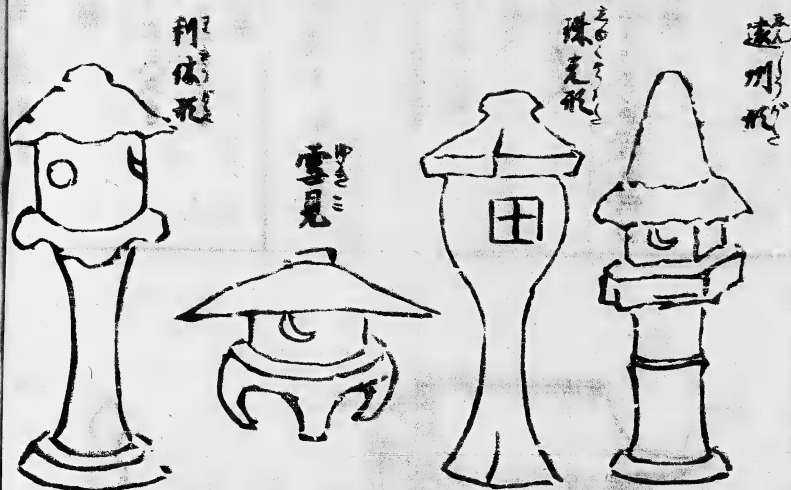 遠州形
ゑんしうがた
珠光形
しゆくわうがた
雪見
ゆきミ
利休形
りきうがた